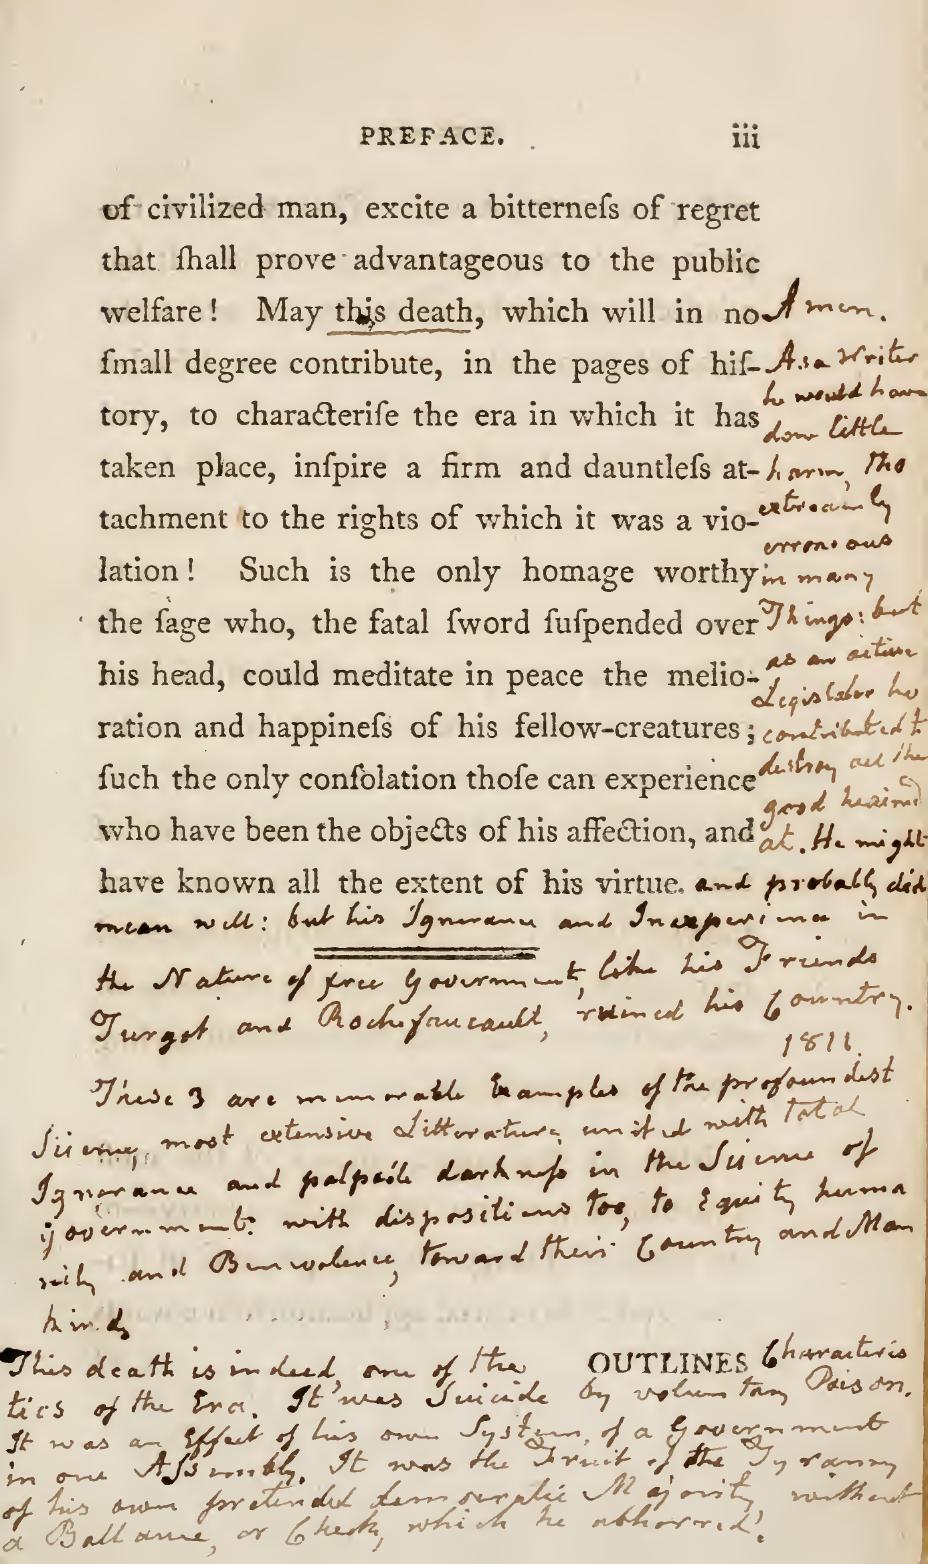 PREFACE. iii
of civilized man, excite a bitterneſs of regret
that ſhall prove advantageous to the public
welfare! May this death, which will in no
ſmall degree contribute, in the pages of hiſ-
tory, to characteriſe the era in which it has
taken place, inſpire a firm and dauntleſs at-
tachment to the rights of which it was a vio-
lation! Such is the only homage worthy
the ſage who, the fatal ſword ſuſpended over
his head, could meditate in peace the melio-
ration and happineſs of his fellow-creatures;
ſuch the only conſolation thoſe can experience
who have been the objects of his affection, and
have known all the extent of his virtue.
Amen.
As a Writer
he would have
done little
harm, tho
extreamly
erroneous
in many
Things: but
as an active
Legislator he
contributed to
destroy all the
good he aimed
at. He might
and probably did
mean well: but his Ignorance and Inexperience in
the Nature of free Government, like his Friends
Turgot and Rochefaucault, ruined his Country.
1811.
These 3 are memorable Examples of the profoundest
Science, most extensive Litterature, united with total
Ignorance and palpable darkness in the Science of
Government: with dispositions too, to Equity huma
nity and Benevolence, toward their Country and Man
kind,
OUTLINES
This death is indeed, one of the Characteris
tics of the Era. It was Suicide by voluntary Poison.
It was an Effect of his own System, of a Government
in one Assembly. It was the Fruit of the Tyranny
of his own pretended democratic Majority, without
a Ballance, or Check, which he abhorred!